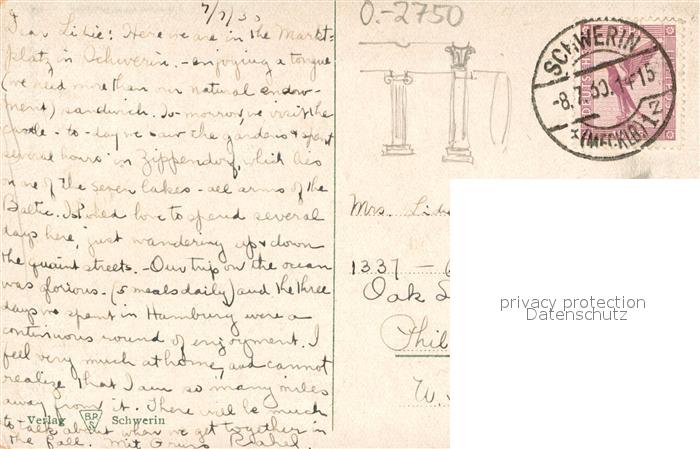 7/7/30
O.-2750
Dear Lidie: Here we are in the Markt-
platz in Schwerin. - enjoying a tongue
(we need more than our natural endow-
ment) sandwich. To-morrow, we visit the
castle - to-day we saw the gardens & spent
several hours in Zippendorf, which lies
on one of the seven lakes - all arms of the
Baltic. I should love to spend several
days here, just wandering up & down
the quaint streets. - Our trip on the ocean
was glorious - (5 meals daily) and the three
days we spent in Hamburg were a
continuous round of enjoyment. I
feel very much at home, and cannot
realize that I am so many miles
away from it. There will be much
to talk about when we get together in
the fall. Mit Gruss
Verlag Schwerin
SCHWERIN
-8.7.30.14-15
(MECKLB) 1
DEUTSCHES
Mrs.
1337 -
Oak
Phil
privacy protection
Datenschutz